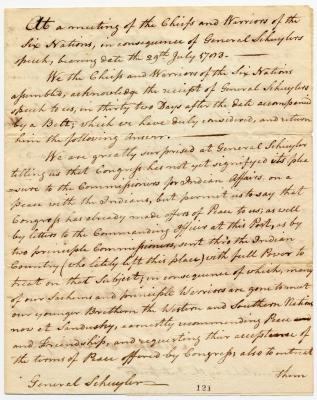 At a meeting of the Chiefs and Warriors of the
Six Nations, in consequence of General Schuylers
speech, bearing date the 29th July 1783.
We the Chiefs and Warriors of the Six Nations
assembled, acknowledge the receipt of General Schuylers
speech to us, in thirty two Days after the date accompanied
by a Belt; which we have duly considered, and return
him the following Answer.
We are greatly surprised at General Schuyler
telling us that Congress has not yet signifyed its plea
sure to the Commissioners for Indian Affairs, on a
peace with the Indians, but permit us to say that
Congress has already made offers of Peace to us; as well
by letters to the Commanding Officer at this Post, as by
two principle Commissioners, sent thro the Indian
Country (who lately left this place) with full Power to
treat on that Subject; in consequence of which, many
of our Sachems and principle Warriors are gone to meet
our younger Brethern the Western and Southern Nations
now at Sandusky, earnestly recommending Peace
and Friendship, and requesting their acceptance of
the terms of Peace offered by Congress; also to entreat
General Schuyler
them
121